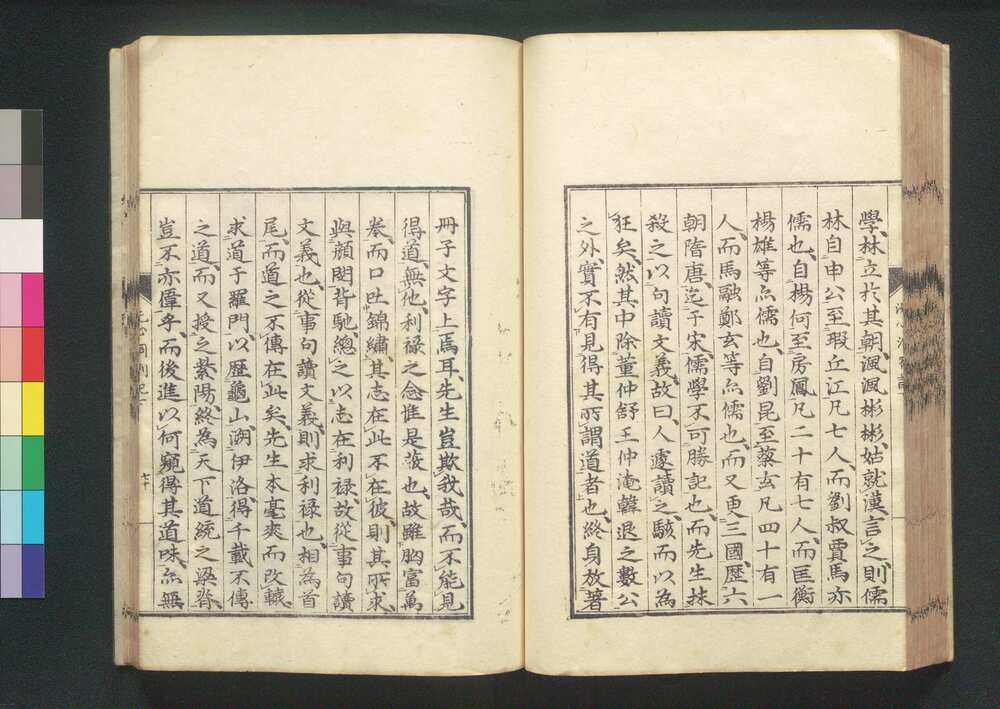 學、林立於其朝、渢渢彬彬、姑就漢言之、則儒
林自申公至瑕丘江凡七人、而劉叔賈馬亦
儒也、自楊何至房鳳凡二十有七人、而匡衡
楊雄等亦儒也、自劉昆至蔡玄凡四十有一
人、而馬融鄭玄等亦儒也、而又更三國、歷六
朝隋唐、迄于宋、儒學不可勝記也、而先生抹
殺之以句讀文義、故曰、人遽讀之、駭而以為
狂矣、然其中除董仲舒王仲淹韓退之數公
之外、實不有見得其所謂道者也、終身放著
冊子文字上焉耳、先生豈欺我哉、而不能見
得道、無他、利祿之念惟是蔽也、故雖胸富萬
卷、而口吐錦繡、其志在此不在彼、則其所求、
與顏閔背馳、總之以志在利祿、故從事句讀
文義也、從事句讀文義、則求利祿也、相為首
尾、而道之不傳在此矣、先生本毫爽而改轍、
求道于羅門、以歷龜山、溯伊洛、得千載不傳
之道、而又授之紫陽、終為天下道統之梁脊、
豈不亦偉乎、而後進以何窺得其道味、亦無